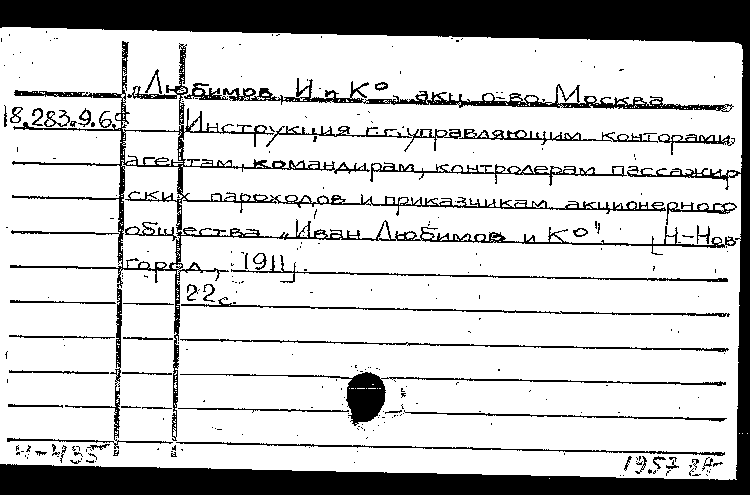 „Любимов, И и К°, акц. о-во. Москва
18.283.9.65
Инструкция г.г. управляющим конторами,
агентам, командирам, контролерам пассажир
ских пароходов и приказчикам акционерного
общества „Иван Любимов и К°". [Н.-Нов-
город, 1911].
22 с.
И-435
1957